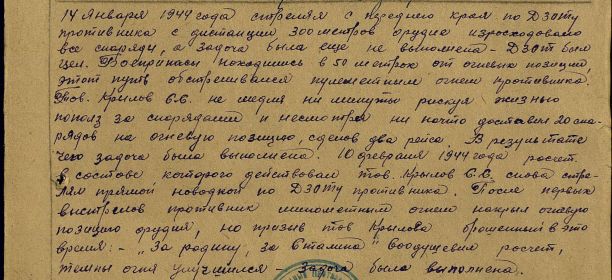 14 января 1944 года стреляя с переднего края по ДЗОТу
противника с дистанции 300 метров орудие израсходовало
все снаряды, а задача была еще не выполнена - ДЗОТ был
цел. Боеприпасы находились в 50 метрах от огневых позиций,
этот путь обстреливался пулеметным огнем противника.
Тов. Крылов С.С. не медля ни минуты рискуя жизнью
пополз за снарядами и несмотря ни на что доставил 20 сна-
рядов на огневую позицию, сделав два рейса. В результате
чего задача была выполнена. 10 февраля 1944 года расчет
в составе которого действовал тов. Крылов С.С. снова стре-
лял прямой наводкой по ДЗОТу противника. После первых
выстрелов противник минометным огнем накрыл огневую
позицию орудия, но призыв тов Крылова брошенный в это
время: - "За родину, за Сталина" воодушевил расчет,
темпы огня улучшился - задача была выполнена.